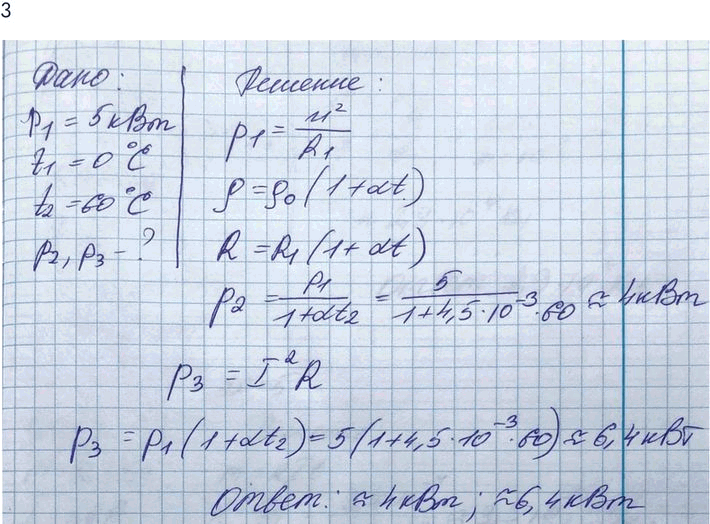 3
Дано:
P₁ = 5 кВт
t₁ = 0 °C
t₂ = 60 °C
P₂, P₃ - ?
Решение:
P₁ = u²/R₁
ρ = ρ₀(1+αt)
R = R₁(1+αt)
P₂ = P₁/(1+αt₂) = 5/(1+4,5·10⁻³·60) ≈ 4 кВт
P₃ = I²R
P₃ = P₁(1+αt₂) = 5(1+4,5·10⁻³·60) ≈ 6,4 кВт
Ответ: ≈ 4 кВт; ≈ 6,4 кВт